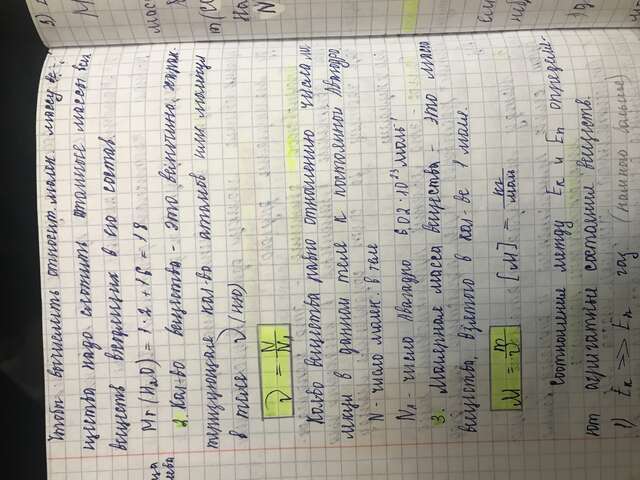 Чтобы вычислить относит. молек. массу ве-
щества надо сложить атомные массы всех
веществ входящих в его состав.
Mr (H₂O) = 1·2 + 16 = 18
2. Кол-во вещества - это величина, харак-
теризующая кол-во атомов или молекул
в теле ν (ню)
ν = N/N₁
Кол-во вещества равно отношению числа мо
лекул в данном теле к постоянной Авагадро
N - число молек. в теле
N₁ - число Авагадро 6,02·10²³ моль⁻¹
3. Молярная масса вещества - это масса
вещества, взятого в кол-ве 1 моля.
M = m/ν [M] = кг/моль
соотношения между Eк и Eп определя-
ют агригатные состояния веществ.
1) Eк >> Eп газ (намного больше)